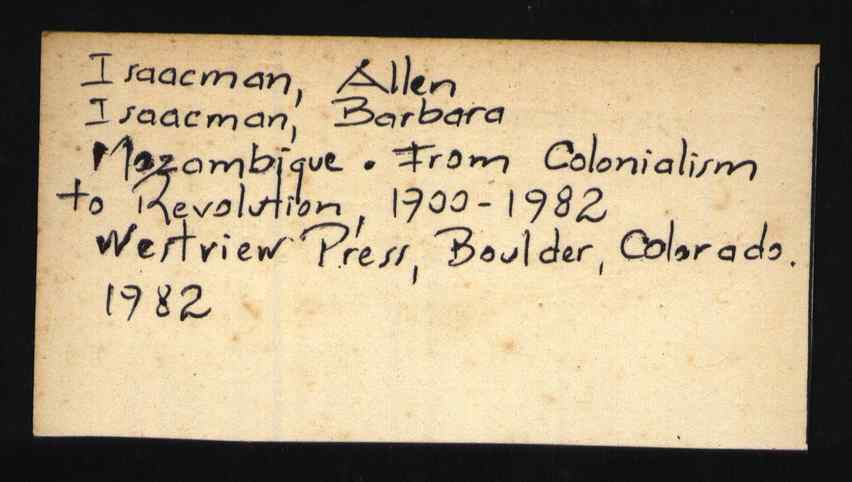 Isaacman, Allen
Isaacman, Barbara
Mozambique. From Colonialism
to Revolution, 1900-1982
Westview Press, Boulder, Colorado.
1982